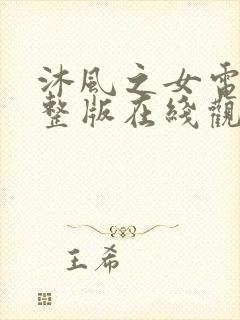 沐風之女電
整版在綫觀
王希